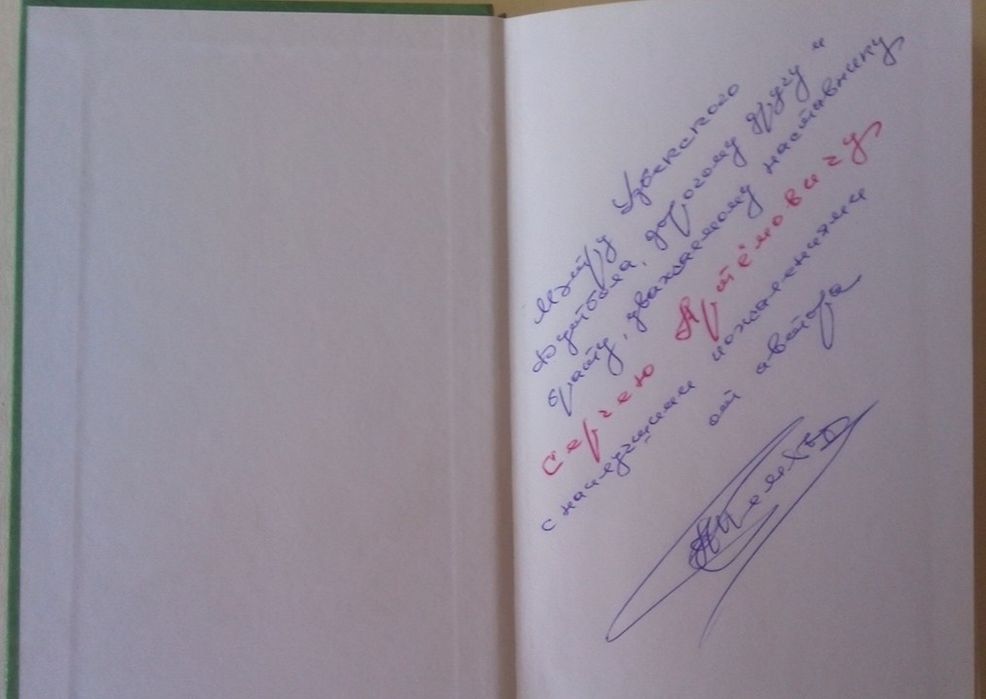 Мэтру Узбекского
футбола, дорогому другу и
брату, уважаемому наставнику,
Сергею Артёмовичу,
с наилучшими пожеланиями
от автора